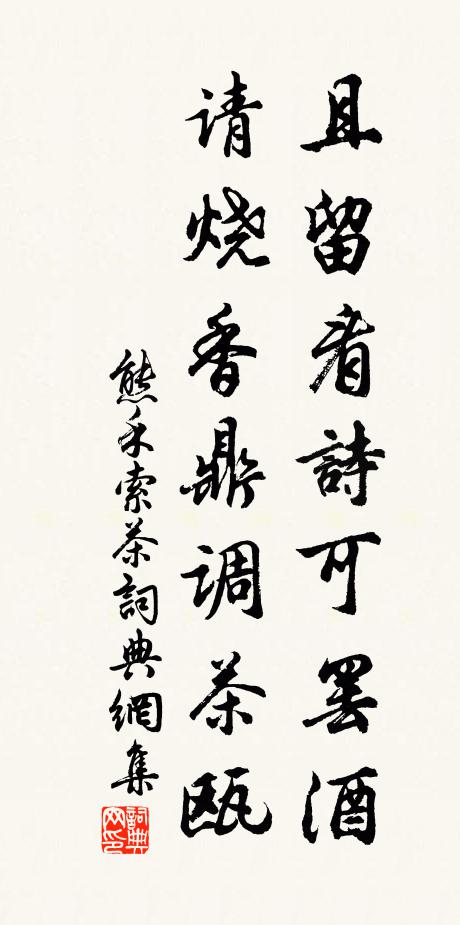 且留看詩可罢酒
请烧香鼎调茶瓯
熊禾索茶詞典網集
詞典网印